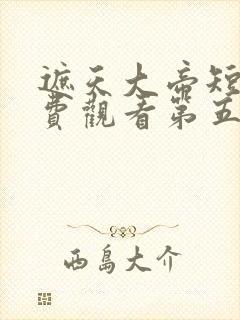 遮天大帝短
費觀看第五
西島大介